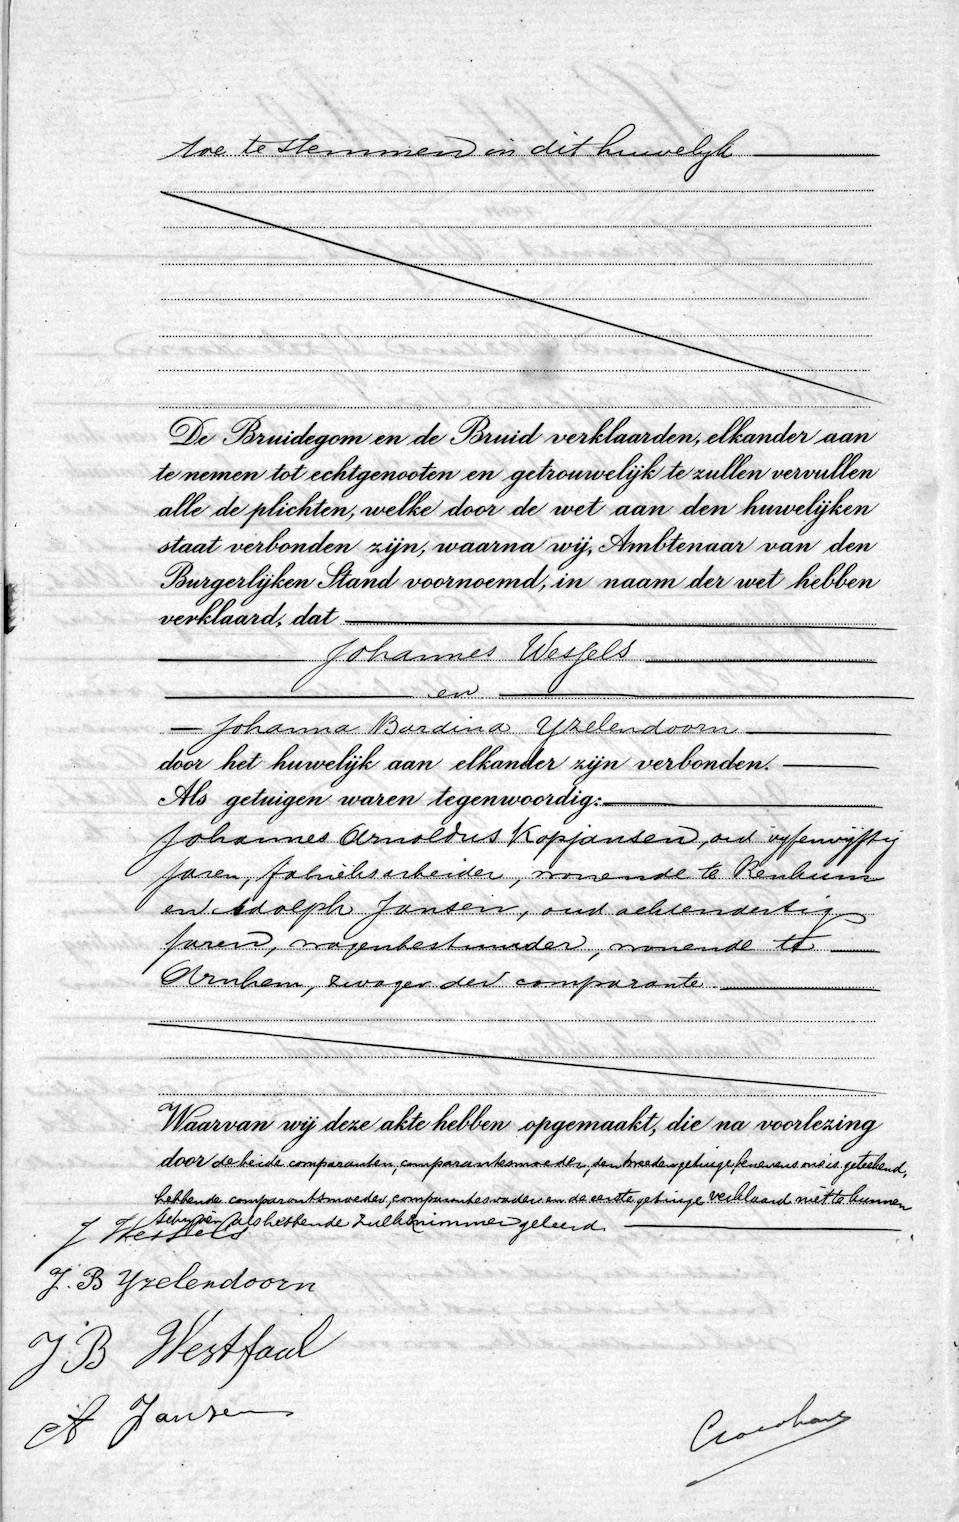 toe te stemmen in dit huwelijk
De Bruidegom en de Bruid verklaarden, elkander aan
te nemen tot echtgenooten en getrouwelijk te zullen vervullen
alle de plichten, welke door de wet aan den huwelijken
staat verbonden zijn, waarna wij, Ambtenaar van den
Burgerlijken Stand voornoemd, in naam der wet hebben
verklaard, dat
Johannes Wessels
en
Johanna Bardina Yzelendoorn
door het huwelijk aan elkander zijn verbonden.
Als getuigen waren tegenwoordig:
Johannes Arnoldus Kopjansen, oud vyfenvyftig
jaren, fabrieksarbeider, wonende te Renkum
en Adolph Jansen, oud achtendertig
jaren, wagenbestuurder, wonende te
Arnhem, zwager der comparante.
Waarvan wij deze akte hebben opgemaakt, die na voorlezing
door de beide comparanten, comparantesmoeder, den tweeden getuige, benevens ons is geteekend,
hebbende comparantsmoeder, comparantes vader en de eerste getuige verklaard niet te kunnen
schryven als hebbende zulks nimmer geleerd.
J Wessels
J. B Yzelendoorn
J B Westfaul
A Jansen